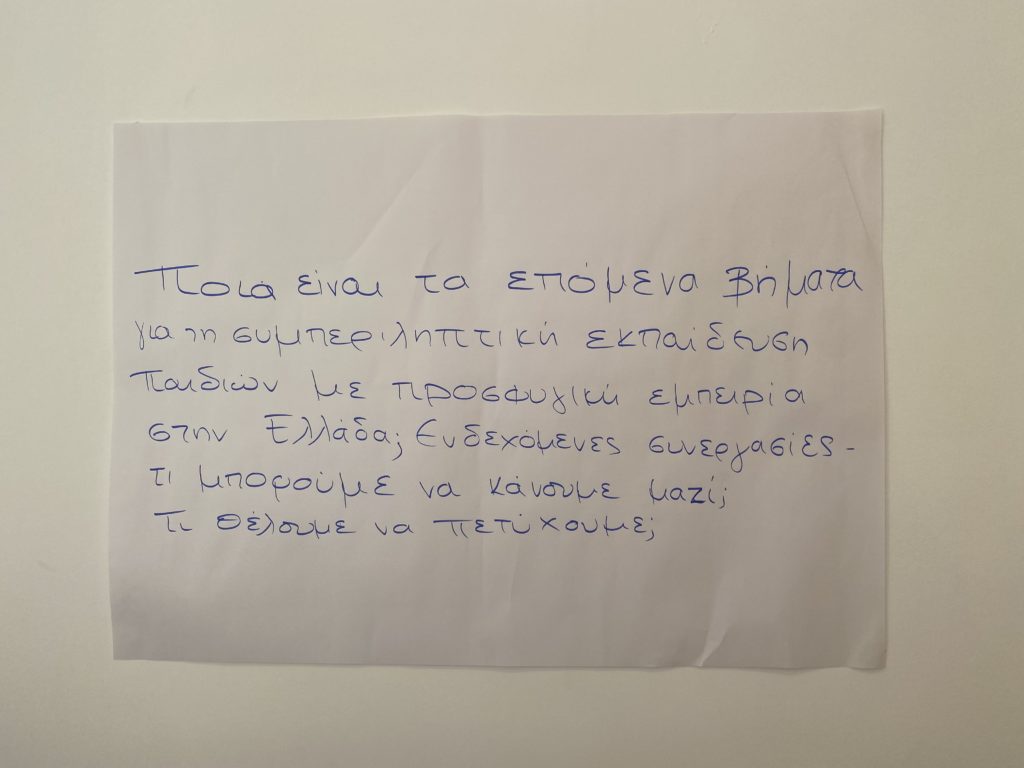 Ποια είναι τα επόμενα βήματα
για τη συμπεριληπτική εκπαίδευση
παιδιών με προσφυγική εμπειρία
στην Ελλάδα; Ενδεχόμενες συνεργασίες -
τι μπορούμε να κάνουμε μαζί;
Τι θέλουμε να πετύχουμε;